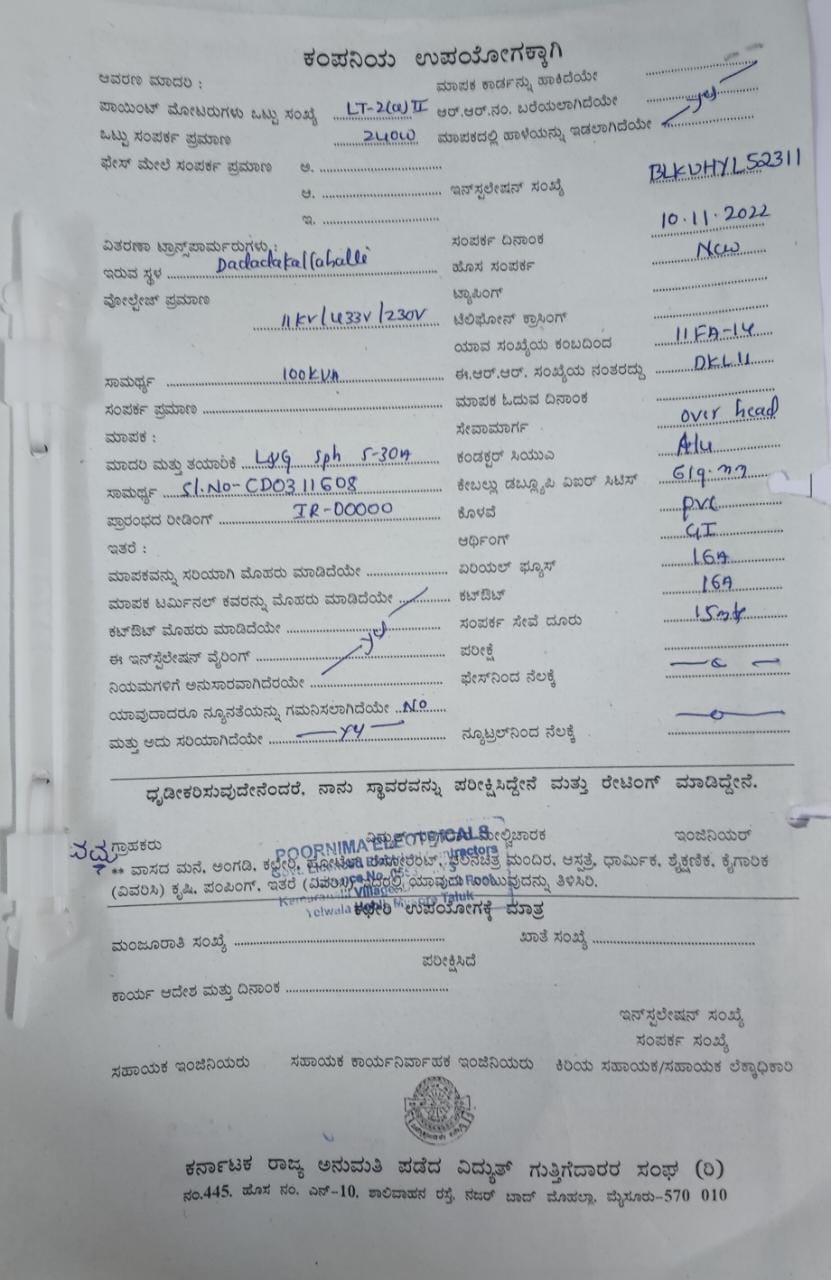 ಕಂಪನಿಯ ಉಪಯೋಗಕ್ಕಾಗಿ
ಆವರಣ ಮಾದರಿ :
ಮಾಪಕ ಕಾರ್ಡನ್ನು ಹಾಕಿದೆಯೇ ....................
ಪಾಯಿಂಟ್ ಮೋಟರುಗಳು ಒಟ್ಟು ಸಂಖ್ಯೆ LT-2(a) II
ಆರ್.ಆರ್.ನಂ. ಬರೆಯಲಾಗಿದೆಯೇ yes
ಒಟ್ಟು ಸಂಪರ್ಕ ಪ್ರಮಾಣ 240W
ಮಾಪಕದಲ್ಲಿ ಹಾಳೆಯನ್ನು ಇಡಲಾಗಿದೆಯೇ
ಫೇಸ್ ಮೇಲೆ ಸಂಪರ್ಕ ಪ್ರಮಾಣ ಅ. ....................
ಆ. ....................
ಇನ್‌ಸ್ಪಲೇಷನ್ ಸಂಖ್ಯೆ BLKVHYL52311
ಇ. ....................
ವಿತರಣಾ ಟ್ರಾನ್ಸ್‌ಪಾರ್ಮರುಗಳು :
ಸಂಪರ್ಕ ದಿನಾಂಕ 10.11.2022
ಇರುವ ಸ್ಥಳ Dadadakallahalli
ಹೊಸ ಸಂಪರ್ಕ New
ವೋಲ್ಟೇಜ್ ಪ್ರಮಾಣ
ಟ್ಯಾಪಿಂಗ್ ....................
11KV/433V/230V
ಟೆಲಿಫೋನ್ ಕ್ರಾಸಿಂಗ್ ....................
ಯಾವ ಸಂಖ್ಯೆಯ ಕಂಬದಿಂದ 11FA-14
ಸಾಮರ್ಥ್ಯ 100KVA
ಈ.ಆರ್.ಆರ್. ಸಂಖ್ಯೆಯ ನಂತರದ್ದು DKL11
ಸಂಪರ್ಕ ಪ್ರಮಾಣ ....................
ಮಾಪಕ ಓದುವ ದಿನಾಂಕ ....................
ಮಾಪಕ :
ಸೇವಾಮಾರ್ಗ over head
ಮಾದರಿ ಮತ್ತು ತಯಾರಿಕೆ L&G Sph 5-30A
ಕಂಡಕ್ಟರ್ ಸಿಯುಎ Alu
ಸಾಮರ್ಥ್ಯ Sl.No-CD0311608
ಕೇಬಲ್ಲು ಡಬ್ಲ್ಯೂಪಿ ವಿಐರ್ ಸಿಟಿಸ್
ಪ್ರಾರಂಭದ ರೀಡಿಂಗ್ IR-00000
ಕೊಳವೆ pvc
ಇತರೆ :
ಆರ್ಥಿಂಗ್ GI
ಮಾಪಕವನ್ನು ಸರಿಯಾಗಿ ಮೊಹರು ಮಾಡಿದೆಯೇ ....................
ಏರಿಯಲ್ ಫ್ಯೂಸ್ 16A
ಮಾಪಕ ಟರ್ಮಿನಲ್ ಕವರನ್ನು ಮೊಹರು ಮಾಡಿದೆಯೇ
ಕಟ್‌ಔಟ್ 16A
ಕಟ್‌ಔಟ್ ಮೊಹರು ಮಾಡಿದೆಯೇ yes
ಸಂಪರ್ಕ ಸೇವೆ ದೂರು 15mtr
ಈ ಇನ್‌ಸ್ಪೆಲೇಷನ್ ವೈರಿಂಗ್
ಪರೀಕ್ಷೆ ....................
ನಿಯಮಗಳಿಗೆ ಅನುಸಾರವಾಗಿದೆರಯೇ ....................
ಫೇಸ್‌ನಿಂದ ನೆಲಕ್ಕೆ
ಯಾವುದಾದರೂ ನ್ಯೂನತೆಯನ್ನು ಗಮನಿಸಲಾಗಿದೆಯೇ NO
ಮತ್ತು ಅದು ಸರಿಯಾಗಿದೆಯೇ
ನ್ಯೂಟ್ರಲ್‌ನಿಂದ ನೆಲಕ್ಕೆ
ಧೃಡೀಕರಿಸುವುದೇನೆಂದರೆ, ನಾನು ಸ್ಥಾವರವನ್ನು ಪರೀಕ್ಷಿಸಿದ್ದೇನೆ ಮತ್ತು ರೇಟಿಂಗ್ ಮಾಡಿದ್ದೇನೆ.
ಗ್ರಾಹಕರು
ಮೇಲ್ವಿಚಾರಕ
ಇಂಜಿನಿಯರ್
POORNIMA ELECTRICALS
** ವಾಸದ ಮನೆ, ಅಂಗಡಿ, ಕಛೇರಿ, ಹೋಟೆಲ್ ರೆಸ್ಟೋರೆಂಟ್, ಚಲನಚಿತ್ರ ಮಂದಿರ, ಆಸ್ಪತ್ರೆ, ಧಾರ್ಮಿಕ, ಶೈಕ್ಷಣಿಕ, ಕೈಗಾರಿಕ
(ವಿವರಿಸಿ) ಕೃಷಿ, ಪಂಪಿಂಗ್, ಇತರೆ (ವಿವರಿಸಿ) ಇದರಲ್ಲಿ ಯಾವುದು ಎಂಬುವುದನ್ನು ತಿಳಿಸಿರಿ.
Yelwala Hobli, Mysore Taluk
ಕಛೇರಿ ಉಪಯೋಗಕ್ಕೆ ಮಾತ್ರ
ಮಂಜೂರಾತಿ ಸಂಖ್ಯೆ ....................
ಖಾತೆ ಸಂಖ್ಯೆ ....................
ಪರೀಕ್ಷಿಸಿದೆ
ಕಾರ್ಯ ಆದೇಶ ಮತ್ತು ದಿನಾಂಕ ....................
ಇನ್‌ಸ್ಪಲೇಷನ್ ಸಂಖ್ಯೆ
ಸಂಪರ್ಕ ಸಂಖ್ಯೆ
ಸಹಾಯಕ ಇಂಜಿನಿಯರು ಸಹಾಯಕ ಕಾರ್ಯನಿರ್ವಾಹಕ ಇಂಜಿನಿಯರು ಕಿರಿಯ ಸಹಾಯಕ/ಸಹಾಯಕ ಲೆಕ್ಕಾಧಿಕಾರಿ
ಕರ್ನಾಟಕ ರಾಜ್ಯ ಅನುಮತಿ ಪಡೆದ ವಿದ್ಯುತ್ ಗುತ್ತಿಗೆದಾರರ ಸಂಘ (ರಿ)
ನಂ.445, ಹೊಸ ನಂ. ಎನ್-10, ಶಾಲಿವಾಹನ ರಸ್ತೆ, ನಜರ್ ಬಾದ್ ಮೊಹಲ್ಲಾ, ಮೈಸೂರು-570 010